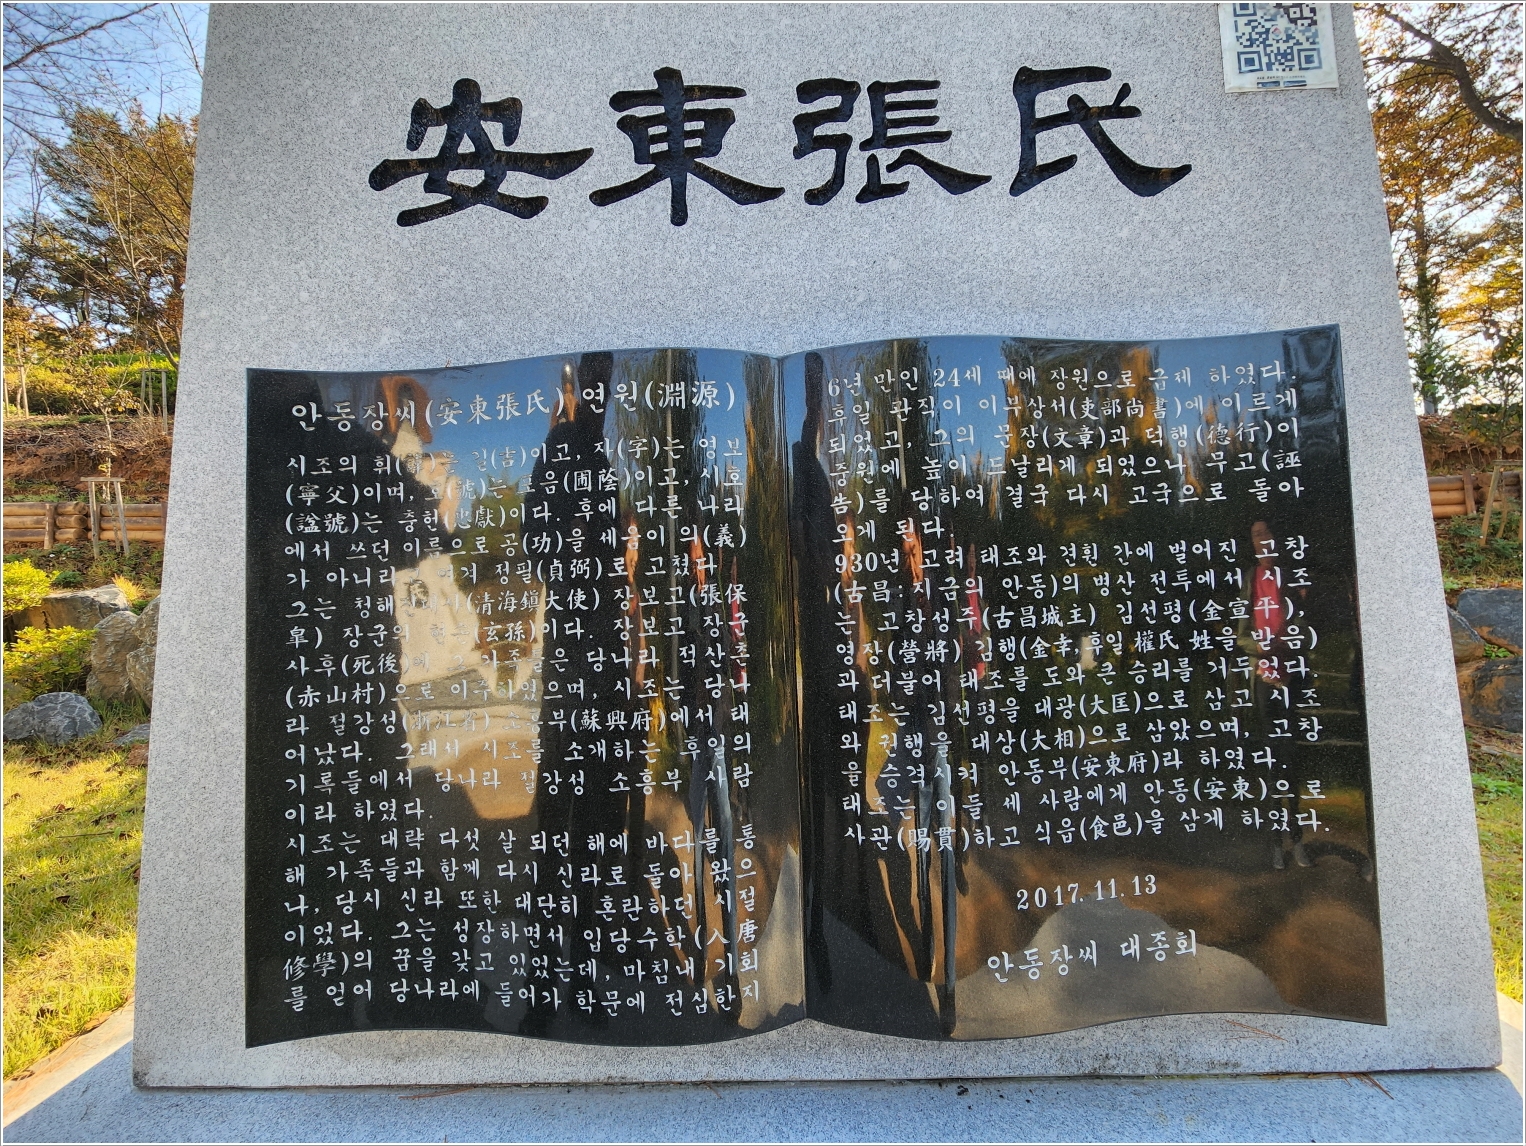 安東張氏
안동장씨(安東張氏) 연원(淵源)
시조의 휘(諱)는 길(吉)이고, 자(字)는 영보
(寧父)이며, 호(號)는 포음(圃蔭)이고, 시호
(諡號)는 충헌(忠獻)이다. 후에 다른 나라
에서 쓰던 이름으로 공(功)을 세움이 의(義)
가 아니라 여겨 정필(貞弼)로 고쳤다
그는 청해진대사(清海鎭大使) 장보고(張保
皐) 장군의 현손(玄孫)이다. 장보고 장군
사후(死後)에 그 가족들은 당나라 적산촌
(赤山村)으로 이주하였으며, 시조는 당나
라 절강성(浙江省) 소흥부(蘇興府)에서 태
어났다. 그래서 시조를 소개하는 후일의
기록들에서 당나라 절강성 소흥부 사람
이라 하였다.
시조는 대략 다섯 살 되던 해에 바다를 통
해 가족들과 함께 다시 신라로 돌아 왔으
나, 당시 신라 또한 대단히 혼란하던 시절
이었다. 그는 성장하면서 입당수학(入唐
修學)의 꿈을 갖고 있었는데, 마침내 기회
를 얻어 당나라에 들어가 학문에 전심한지
6년 만인 24세 때에 장원으로 급제 하였다.
후일 관직이 이부상서(吏部尚書)에 이르게
되었고, 그의 문장(文章)과 덕행(德行)이
중원에 높이 드날리게 되었으나 무고(誣
告)를 당하여 결국 다시 고국으로 돌아
오게 된다.
930년 고려 태조와 견훤 간에 벌어진 고창
(古昌:지금의 안동)의 병산 전투에서 시조
는 고창성주(古昌城主) 김선평(金宣平),
영장(營將) 김행(金幸,후일 權氏 姓을 받음)
과 더불어 태조를 도와 큰 승리를 거두었다.
태조는 김선평을 대광(大匡)으로 삼고 시조
와 권행을 대상(大相)으로 삼았으며, 고창
을 승격시켜 안동부(安東府)라 하였다.
태조는 이들 세 사람에게 안동(安東)으로
사관(賜貫)하고 식읍(食邑)을 삼게 하였다.
2017.11.13
안동장씨 대종회